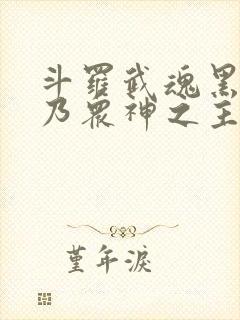 斗羅武魂黑
乃眾神之主
堇年淚